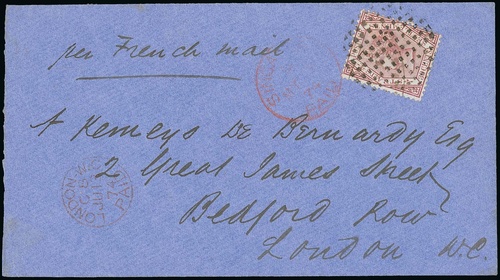 per French mail
A Kemeys De Bernardy Esq
2 Great James Street
Bedford Row
London W.C.
LONDON-W
PAID